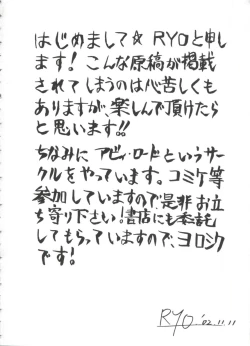 はじめまして☆ RYOと申し
ます！こんな原稿が掲載
されてしまうのは心苦しくも
ありますが、楽しんで頂けたら
と思います!!
ちなみに アビィ・ロードというサー
クルをやっています。コミケ等
参加していますので是非 お立
ち寄り下さい！書店にも委託
してもらっていますので、ヨロシク
です！
RYO '02.11.11